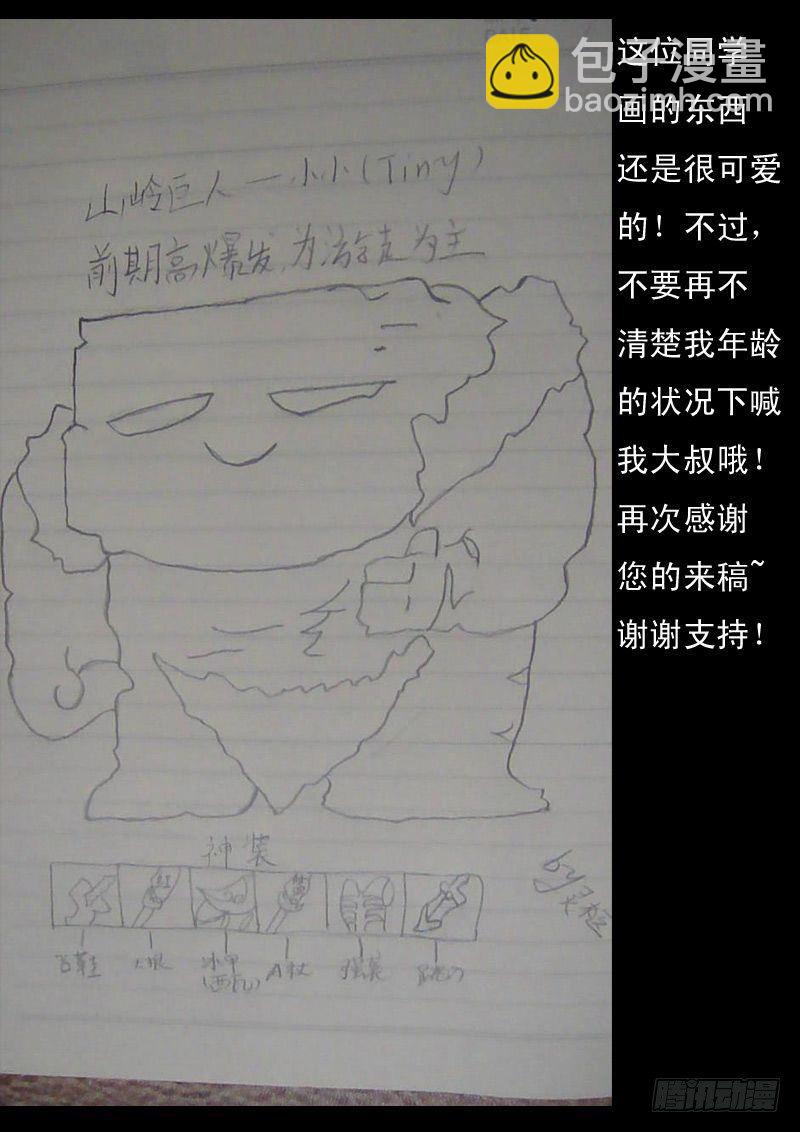 包子漫畫
baozimh.com
这位同学
画的东西
还是很可爱
的！不过，
不要再不
清楚我年龄
的状况下喊
我大叔哦！
再次感谢
您的来稿~
谢谢支持！
山岭巨人—小小(Tiny)
前期高爆发,为法 为主
神装
飞鞋 大根 冰甲 A杖 强袭 跳刀
(西瓦)
by
腾讯动漫